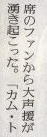 席のファンから大声援が
湧き起こった。「カム・ト